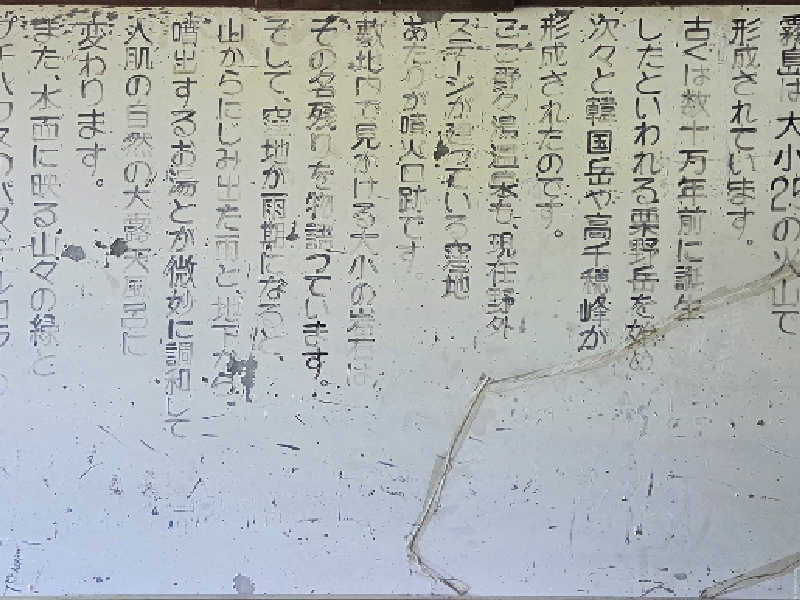 霧島は大小25の火山で
形成されています。
古くは数十万年前に誕生
したといわれる栗野岳を始め
次々と韓国岳や高千穂峰が
形成されたのです。
ここ野々湯温泉も、現在野外
ステージが建っている窪地
あたりが噴火口跡です。
敷地内で見かける大小の岩石は、
その名残りを物語っています。
そして、窪地が雨期になると、
山からにじみ出た雨と、地下から
噴出するお湯とが微妙に調和して
人肌の自然の大露天風呂に
変わります。
また、水面に映る山々の緑と